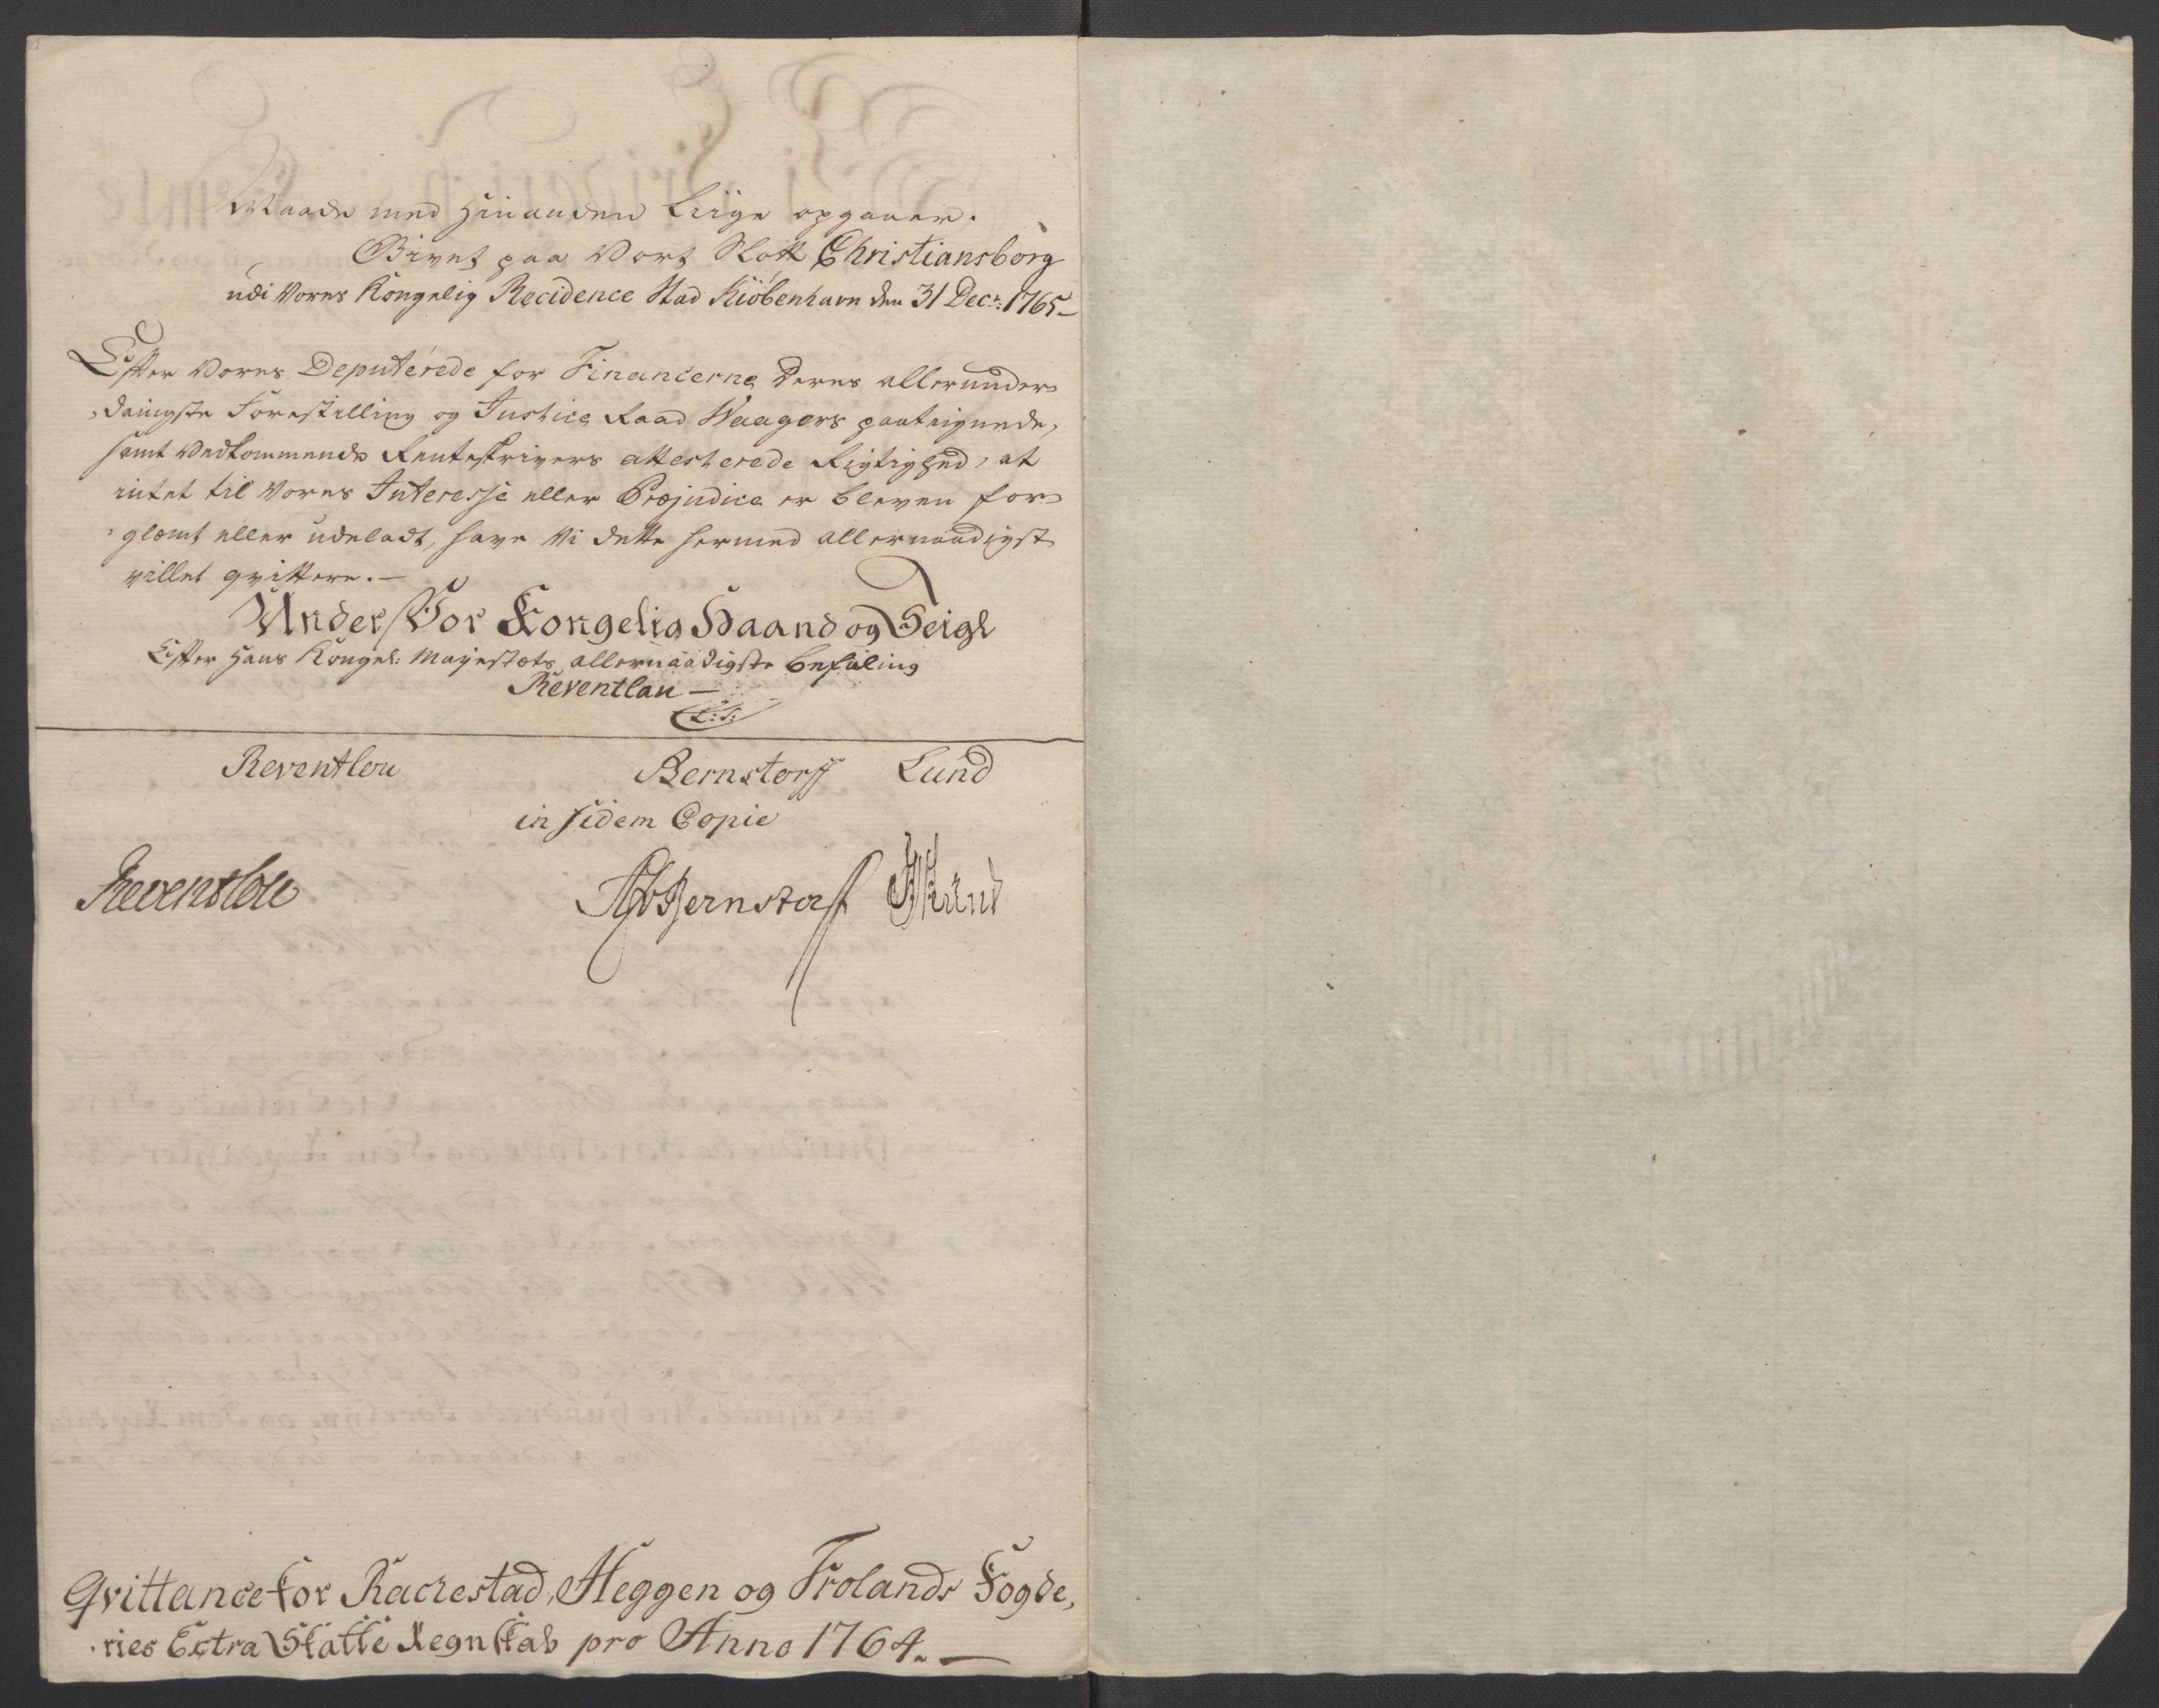 Maade med hinanden Liige opgaaer.
Givet paa Vort Slott Christiansborg
udi Vores Kongelig Recidence Stad Kiöbenhavn den 31 Decr: 1765 –
Efter Vores Deputerede for Financerne deres allerunder-
-danigste Forestilling og Justice Raad Waagers paateignede,
samt Vedkommende Renteskrivers attesterede Rigtighed, at
intet til Vores Interesse eller Præjudice er bleven for-
-glemt eller udeladt, have Vi dette hermed allernaadigst
villet qvittere. –
Under Vor Kongelig Haand og Seigl
Efter Hans Kongel: Mayestæts allernaadigste befaling
Reventlau –
L: S:
Reventlou Bernstorff Lund
in fidem Copie
Reventlou Bernstorff Lund
Qvittance for Rackestad, Heggen og Frolands Fogde,
-ries Extra Skatte Regnskab pro Anno 1764. –